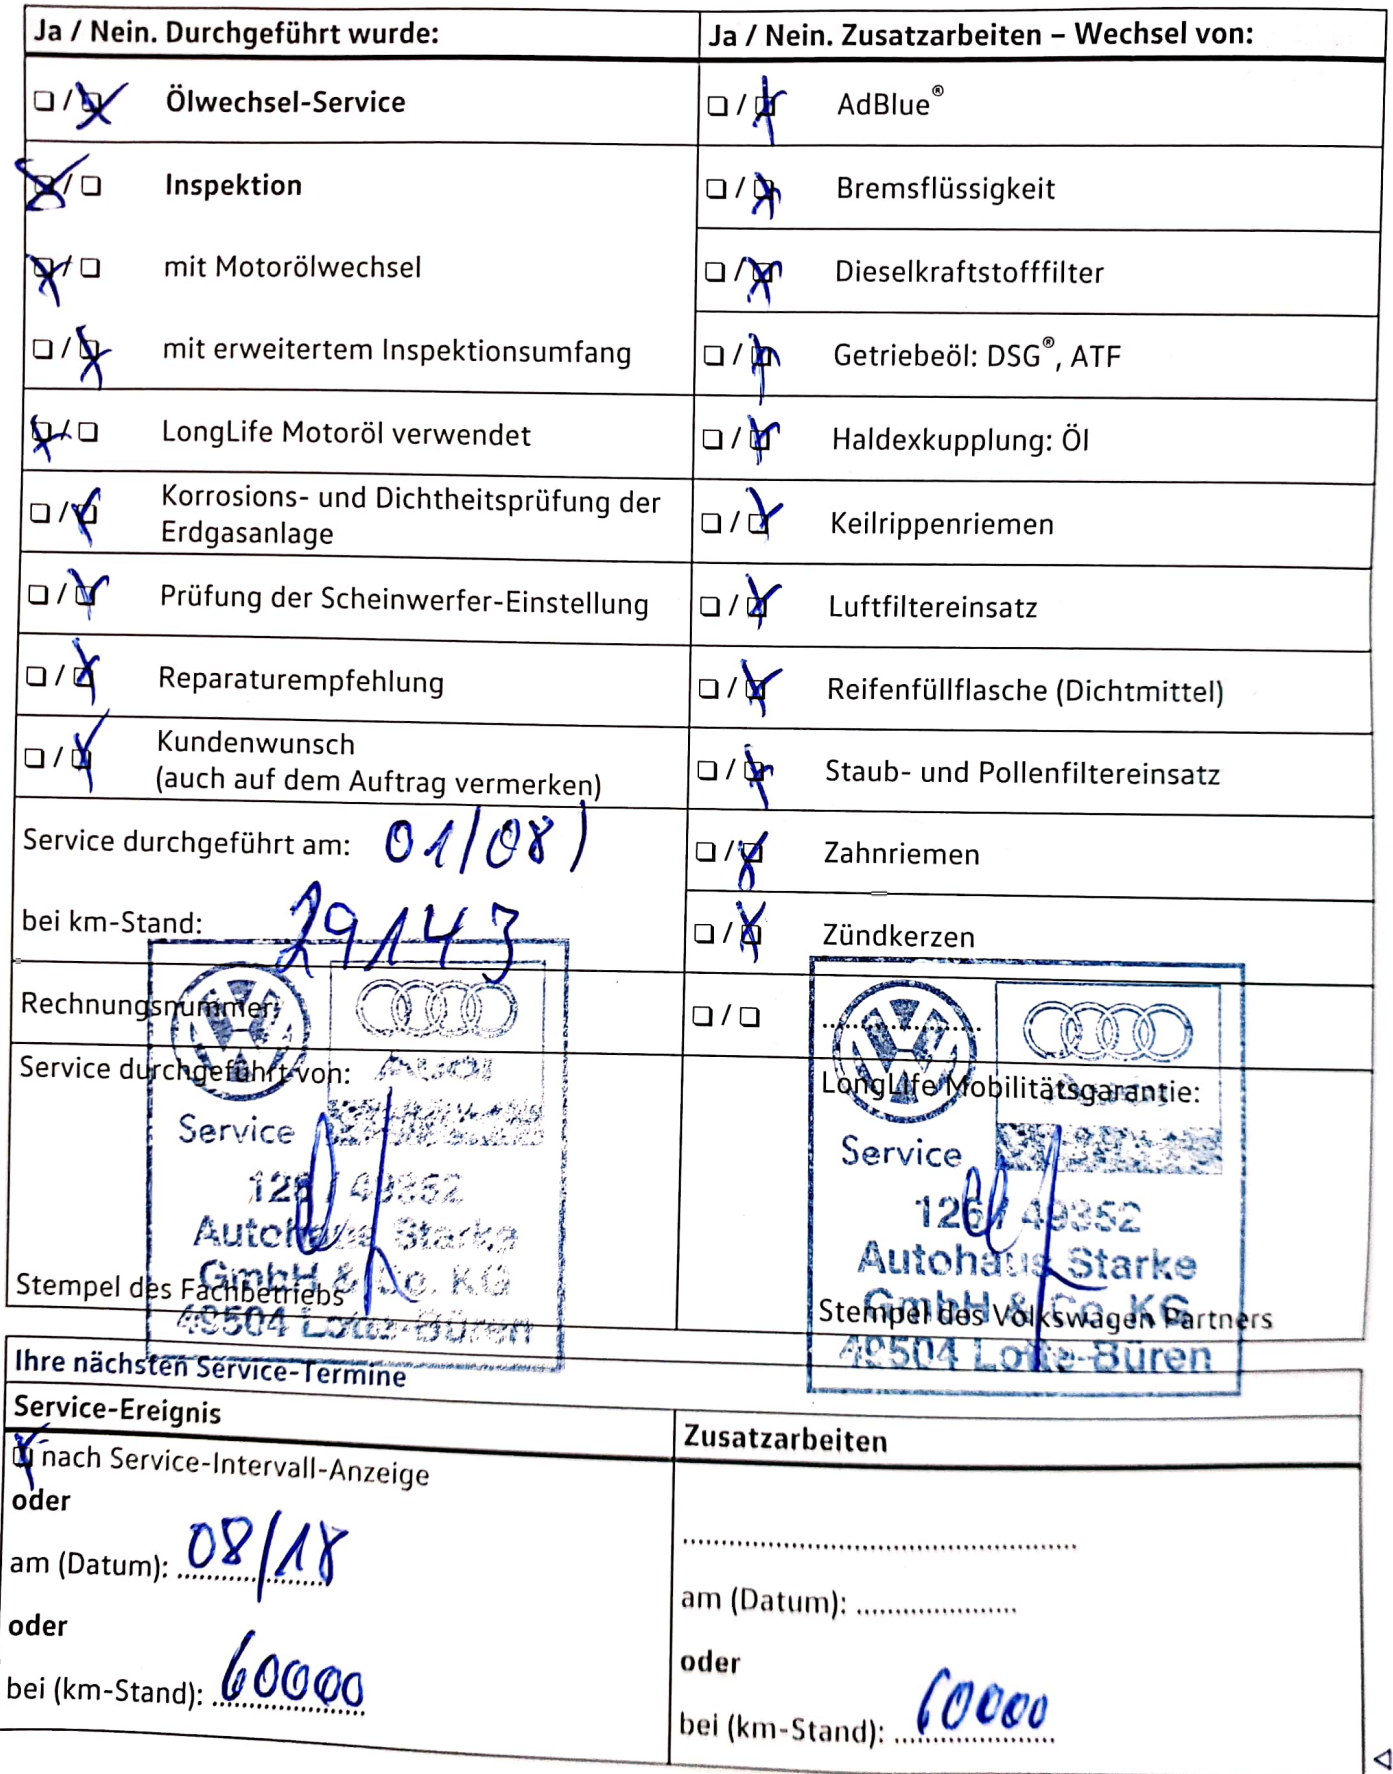 Ja / Nein. Durchgeführt wurde:
❏ / ❏ Ölwechsel-Service
❏ / ❏ Inspektion
❏ / ❏ mit Motorölwechsel
❏ / ❏ mit erweitertem Inspektionsumfang
❏ / ❏ LongLife Motoröl verwendet
❏ / ❏ Korrosions- und Dichtheitsprüfung der
Erdgasanlage
❏ / ❏ Prüfung der Scheinwerfer-Einstellung
❏ / ❏ Reparaturempfehlung
❏ / ❏ Kundenwunsch
(auch auf dem Auftrag vermerken)
Service durchgeführt am: 01/08/
bei km-Stand: 29143
Rechnungsnummer:
Service durchgeführt von:
Audi
Service
126 / 49352
Autohaus Starke
GmbH & Co. KG
Stempel des Fachbetriebs
49504 Lotte-Büren
Ja / Nein. Zusatzarbeiten – Wechsel von:
❏ / ❏ AdBlue®
❏ / ❏ Bremsflüssigkeit
❏ / ❏ Dieselkraftstofffilter
❏ / ❏ Getriebeöl: DSG®, ATF
❏ / ❏ Haldexkupplung: Öl
❏ / ❏ Keilrippenriemen
❏ / ❏ Luftfiltereinsatz
❏ / ❏ Reifenfüllflasche (Dichtmittel)
❏ / ❏ Staub- und Pollenfiltereinsatz
❏ / ❏ Zahnriemen
❏ / ❏ Zündkerzen
❏ / ❏ ....................
LongLife Mobilitätsgarantie:
Service
126 / 49352
Autohaus Starke
GmbH & Co. KG
Stempel des Volkswagen Partners
49504 Lotte-Büren
Ihre nächsten Service-Termine
Service-Ereignis
❏ nach Service-Intervall-Anzeige
oder
am (Datum): 08/18
oder
bei (km-Stand): 60000
Zusatzarbeiten
am (Datum): ....................
oder
bei (km-Stand): 60000